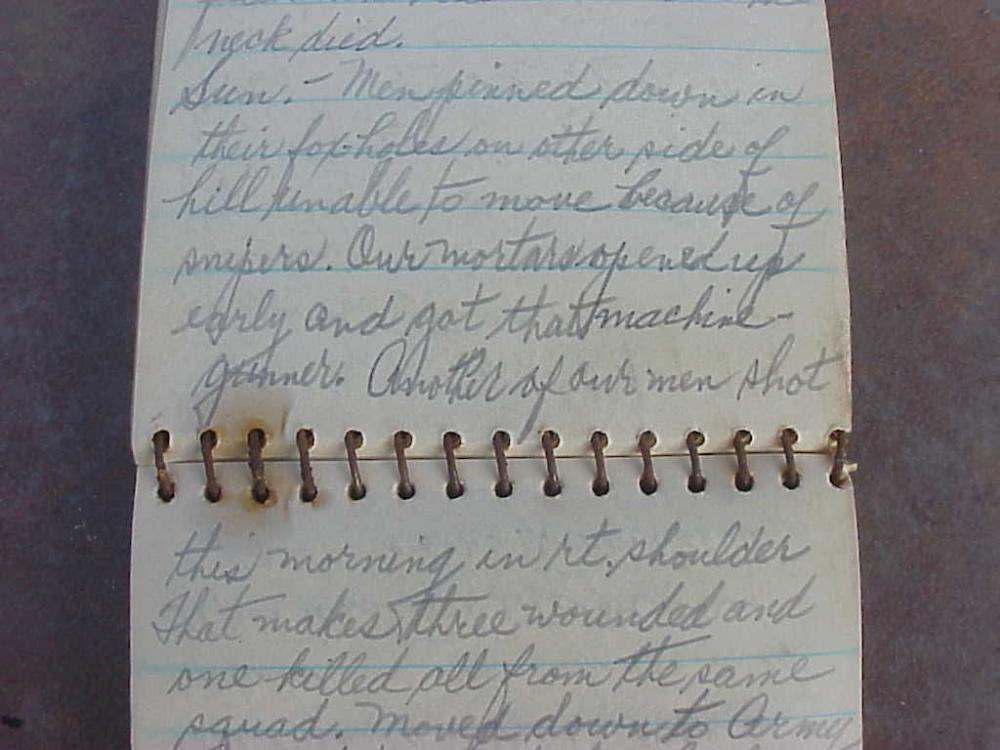 neck died.
Sun. - Men pinned down in
their fox-holes on other side of
hill unable to move because of
snipers. Our mortars opened up
early and got that machine-
gunner. Another of our men shot
this morning in rt. shoulder
That makes three wounded and
one killed all from the same
squad. Moved down to Army